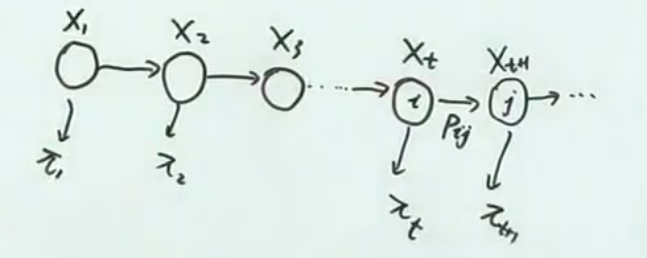 X₁ X₂ X₃ Xt Xt+1
····· i Pij j ···
π₁ π₂ πt πt+1